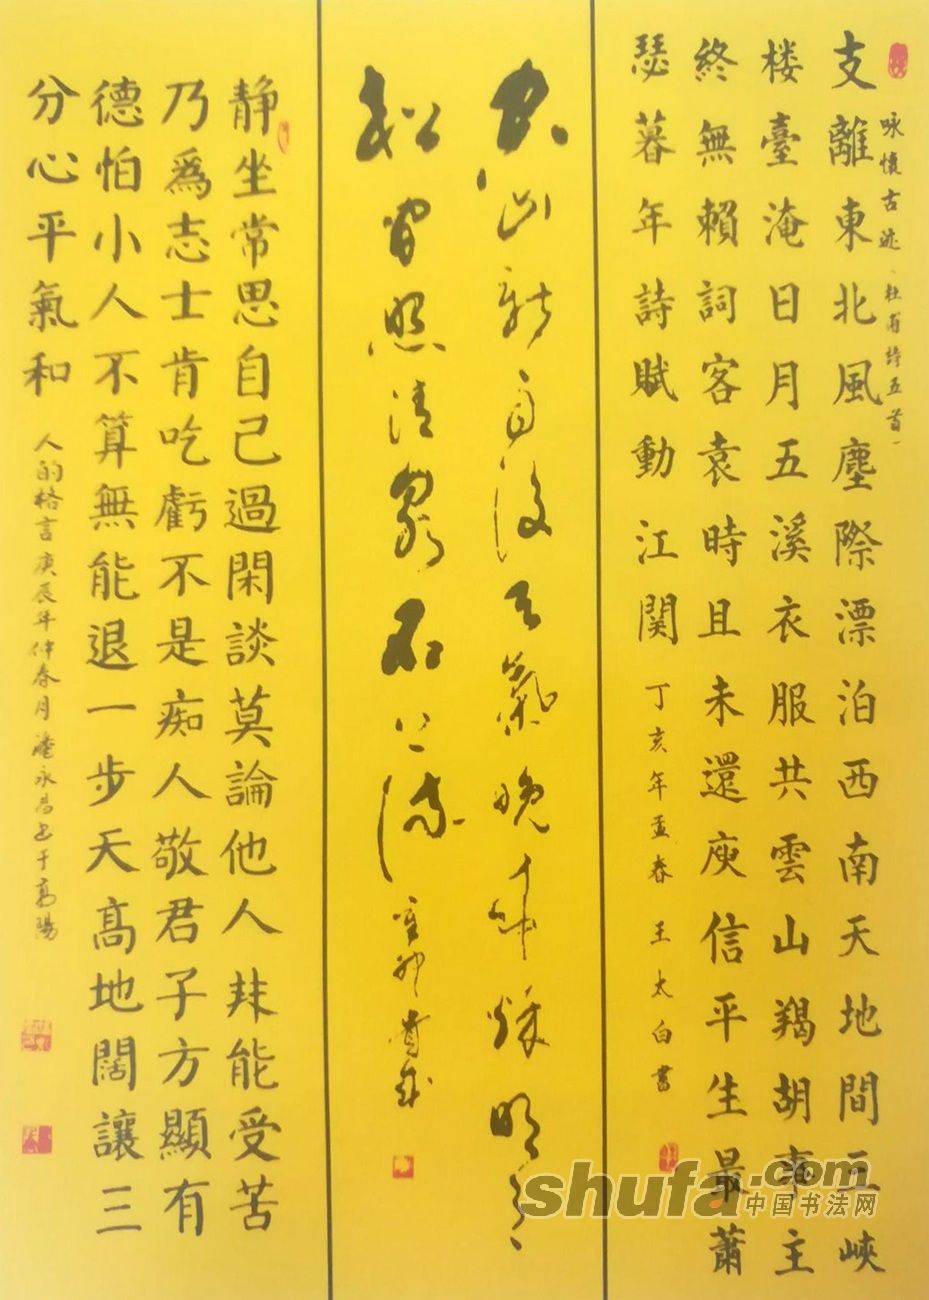 咏懷古迹、杜甫詩五首一
支離東北風塵際漂泊西南天地間三峽
楼臺淹日月五溪衣服共雲山羯胡事主
終無賴詞客袁時且未還庾信平生最蕭
瑟暮年詩賦動江関 丁亥年孟春 王太白書
空山新雨後天氣晚来秋明月
松間照清泉石上流 辛卯
静坐常思自己過閑談莫論他人非能受苦
乃爲志士肯吃虧不是痴人敬君子方顯有
德怕小人不算無能退一步天高地闊讓三
分心平氣和 人的格言庚辰年仲春月永昌书于高陽
shufa.com
中国书法网